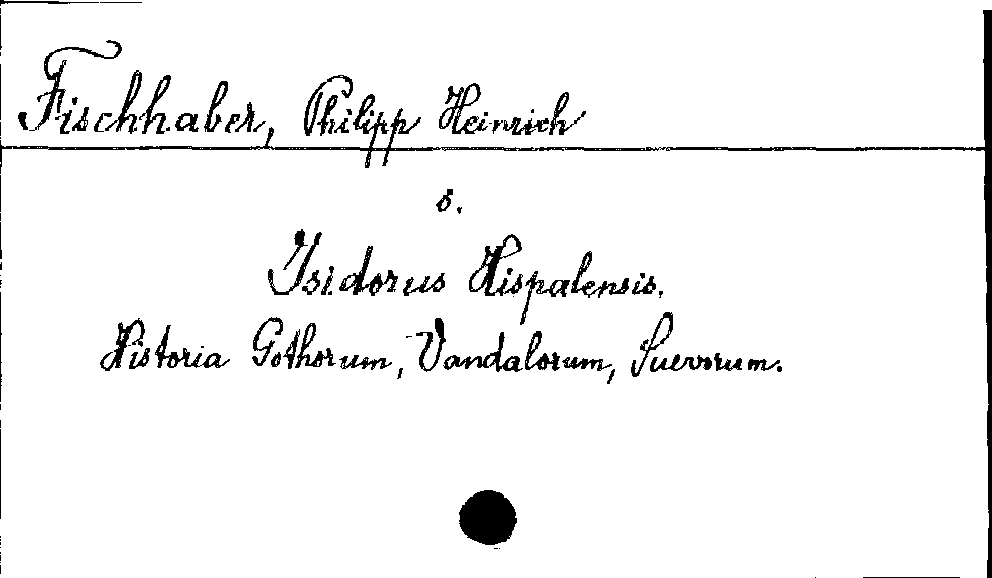 Fischhaber, Philipp Heinrich
s.
Isidorus Hispalensis.
Historia Gothorum, Vandalorum, Suevorum.